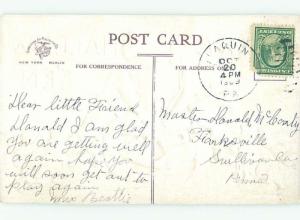 POST CARD
NEW YORK BERLIN
FOR CORRESPONDENCE
LAQUIN
OCT
20
4 PM
PA.
Dear little Friend
Donald I am glad
you are getting well
again hope you
will soon get out to
play again
Mrs Beattie
Master Donald McCarty
Forksville
Sullivan Co
Penna